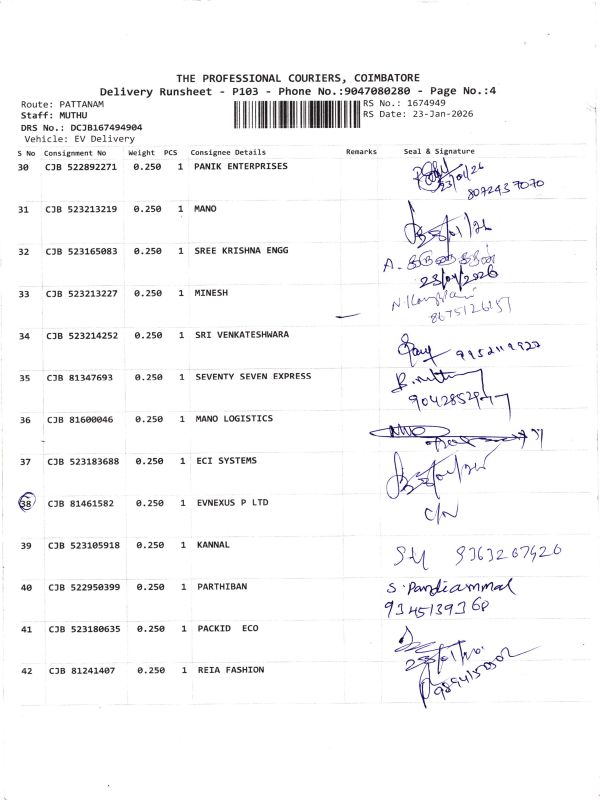 THE PROFESSIONAL COURIERS, COIMBATORE
Delivery Runsheet - P103 - Phone No.:9047080280 - Page No.:4
Route: PATTANAM
RS No.: 1674949
Staff: MUTHU
RS Date: 23-Jan-2026
DRS No.: DCJB167494904
Vehicle: EV Delivery
S No Consignment No Weight PCS Consignee Details Remarks Seal & Signature
30 CJB 522892271 0.250 1 PANIK ENTERPRISES
23/01/26
8072437070
31 CJB 523213219 0.250 1 MANO
32 CJB 523165083 0.250 1 SREE KRISHNA ENGG
23/01/2026
33 CJB 523213227 0.250 1 MINESH
34 CJB 523214252 0.250 1 SRI VENKATESHWARA
35 CJB 81347693 0.250 1 SEVENTY SEVEN EXPRESS
36 CJB 81600046 0.250 1 MANO LOGISTICS
37 CJB 523183688 0.250 1 ECI SYSTEMS
38 CJB 81461582 0.250 1 EVNEXUS P LTD
C/N
39 CJB 523105918 0.250 1 KANNAL
9363267426
40 CJB 522950399 0.250 1 PARTHIBAN
S. Pandiammal
41 CJB 523180635 0.250 1 PACKID ECO
42 CJB 81241407 0.250 1 REIA FASHION